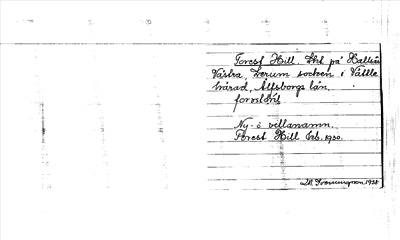 Forest Hill. Lht på Hallsås
Västra, Lerum socken i Vättle
härad, Älfsborgs län.
forest hil
Ny- å villanamn.
Forest Hill Erb. 1930.
1938